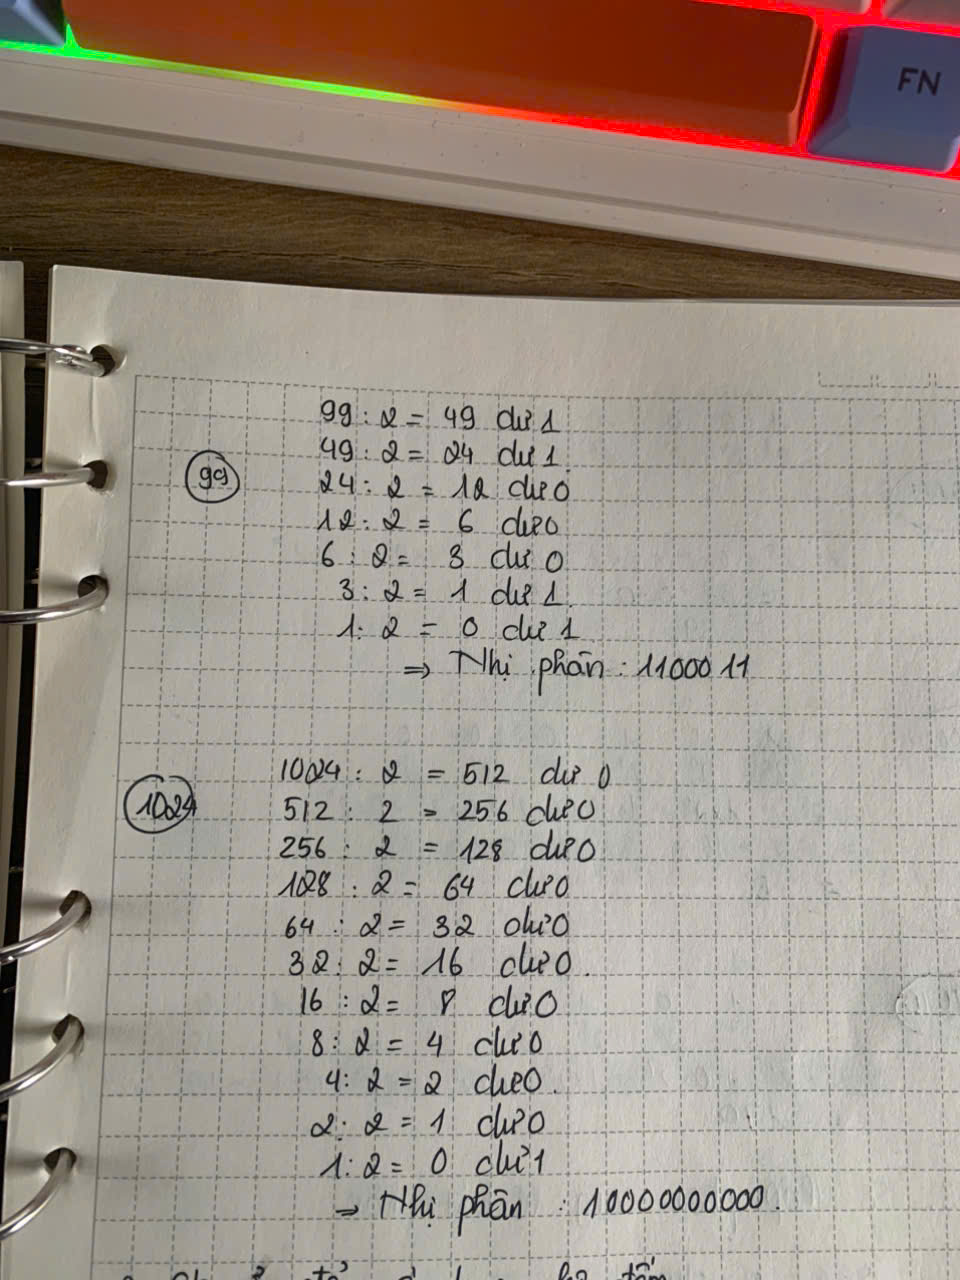 FN
99 : 2 = 49 dư 1
49 : 2 = 24 dư 1.
99
24 : 2 = 12 dư 0
12 : 2 = 6 dư 0
6 : 2 = 3 dư 0
3 : 2 = 1 dư 1.
1 : 2 = 0 dư 1
⇒ Nhị phân : 1100011
1024 : 2 = 512 dư 0
1024
512 : 2 = 256 dư 0
256 : 2 = 128 dư 0
128 : 2 = 64 dư 0
64 : 2 = 32 dư 0
32 : 2 = 16 dư 0.
16 : 2 = 8 dư 0
8 : 2 = 4 dư 0
4 : 2 = 2 dư 0.
2 : 2 = 1 dư 0
1 : 2 = 0 dư 1
→ Nhị phân : 10000000000.